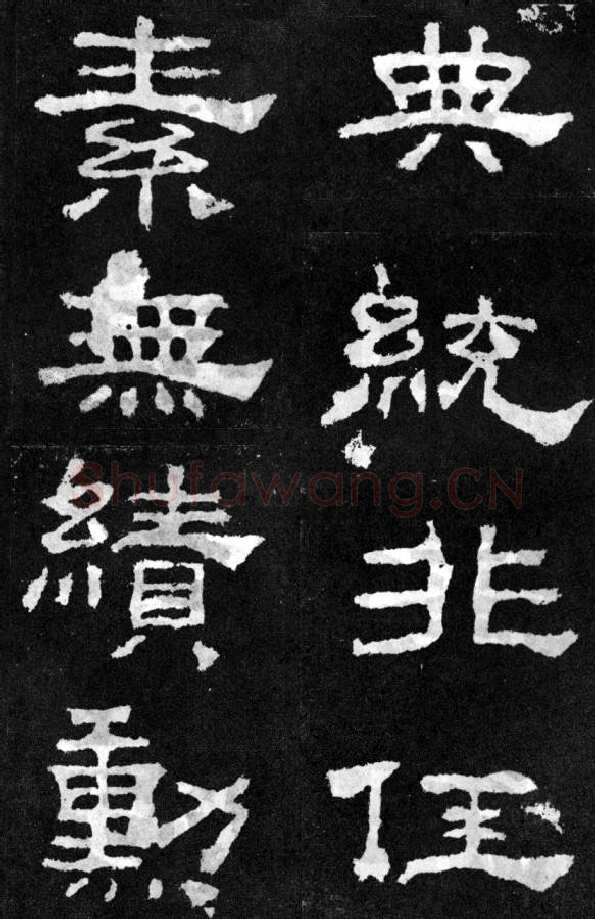 典統非任
素無績勳
Shufawang.CN